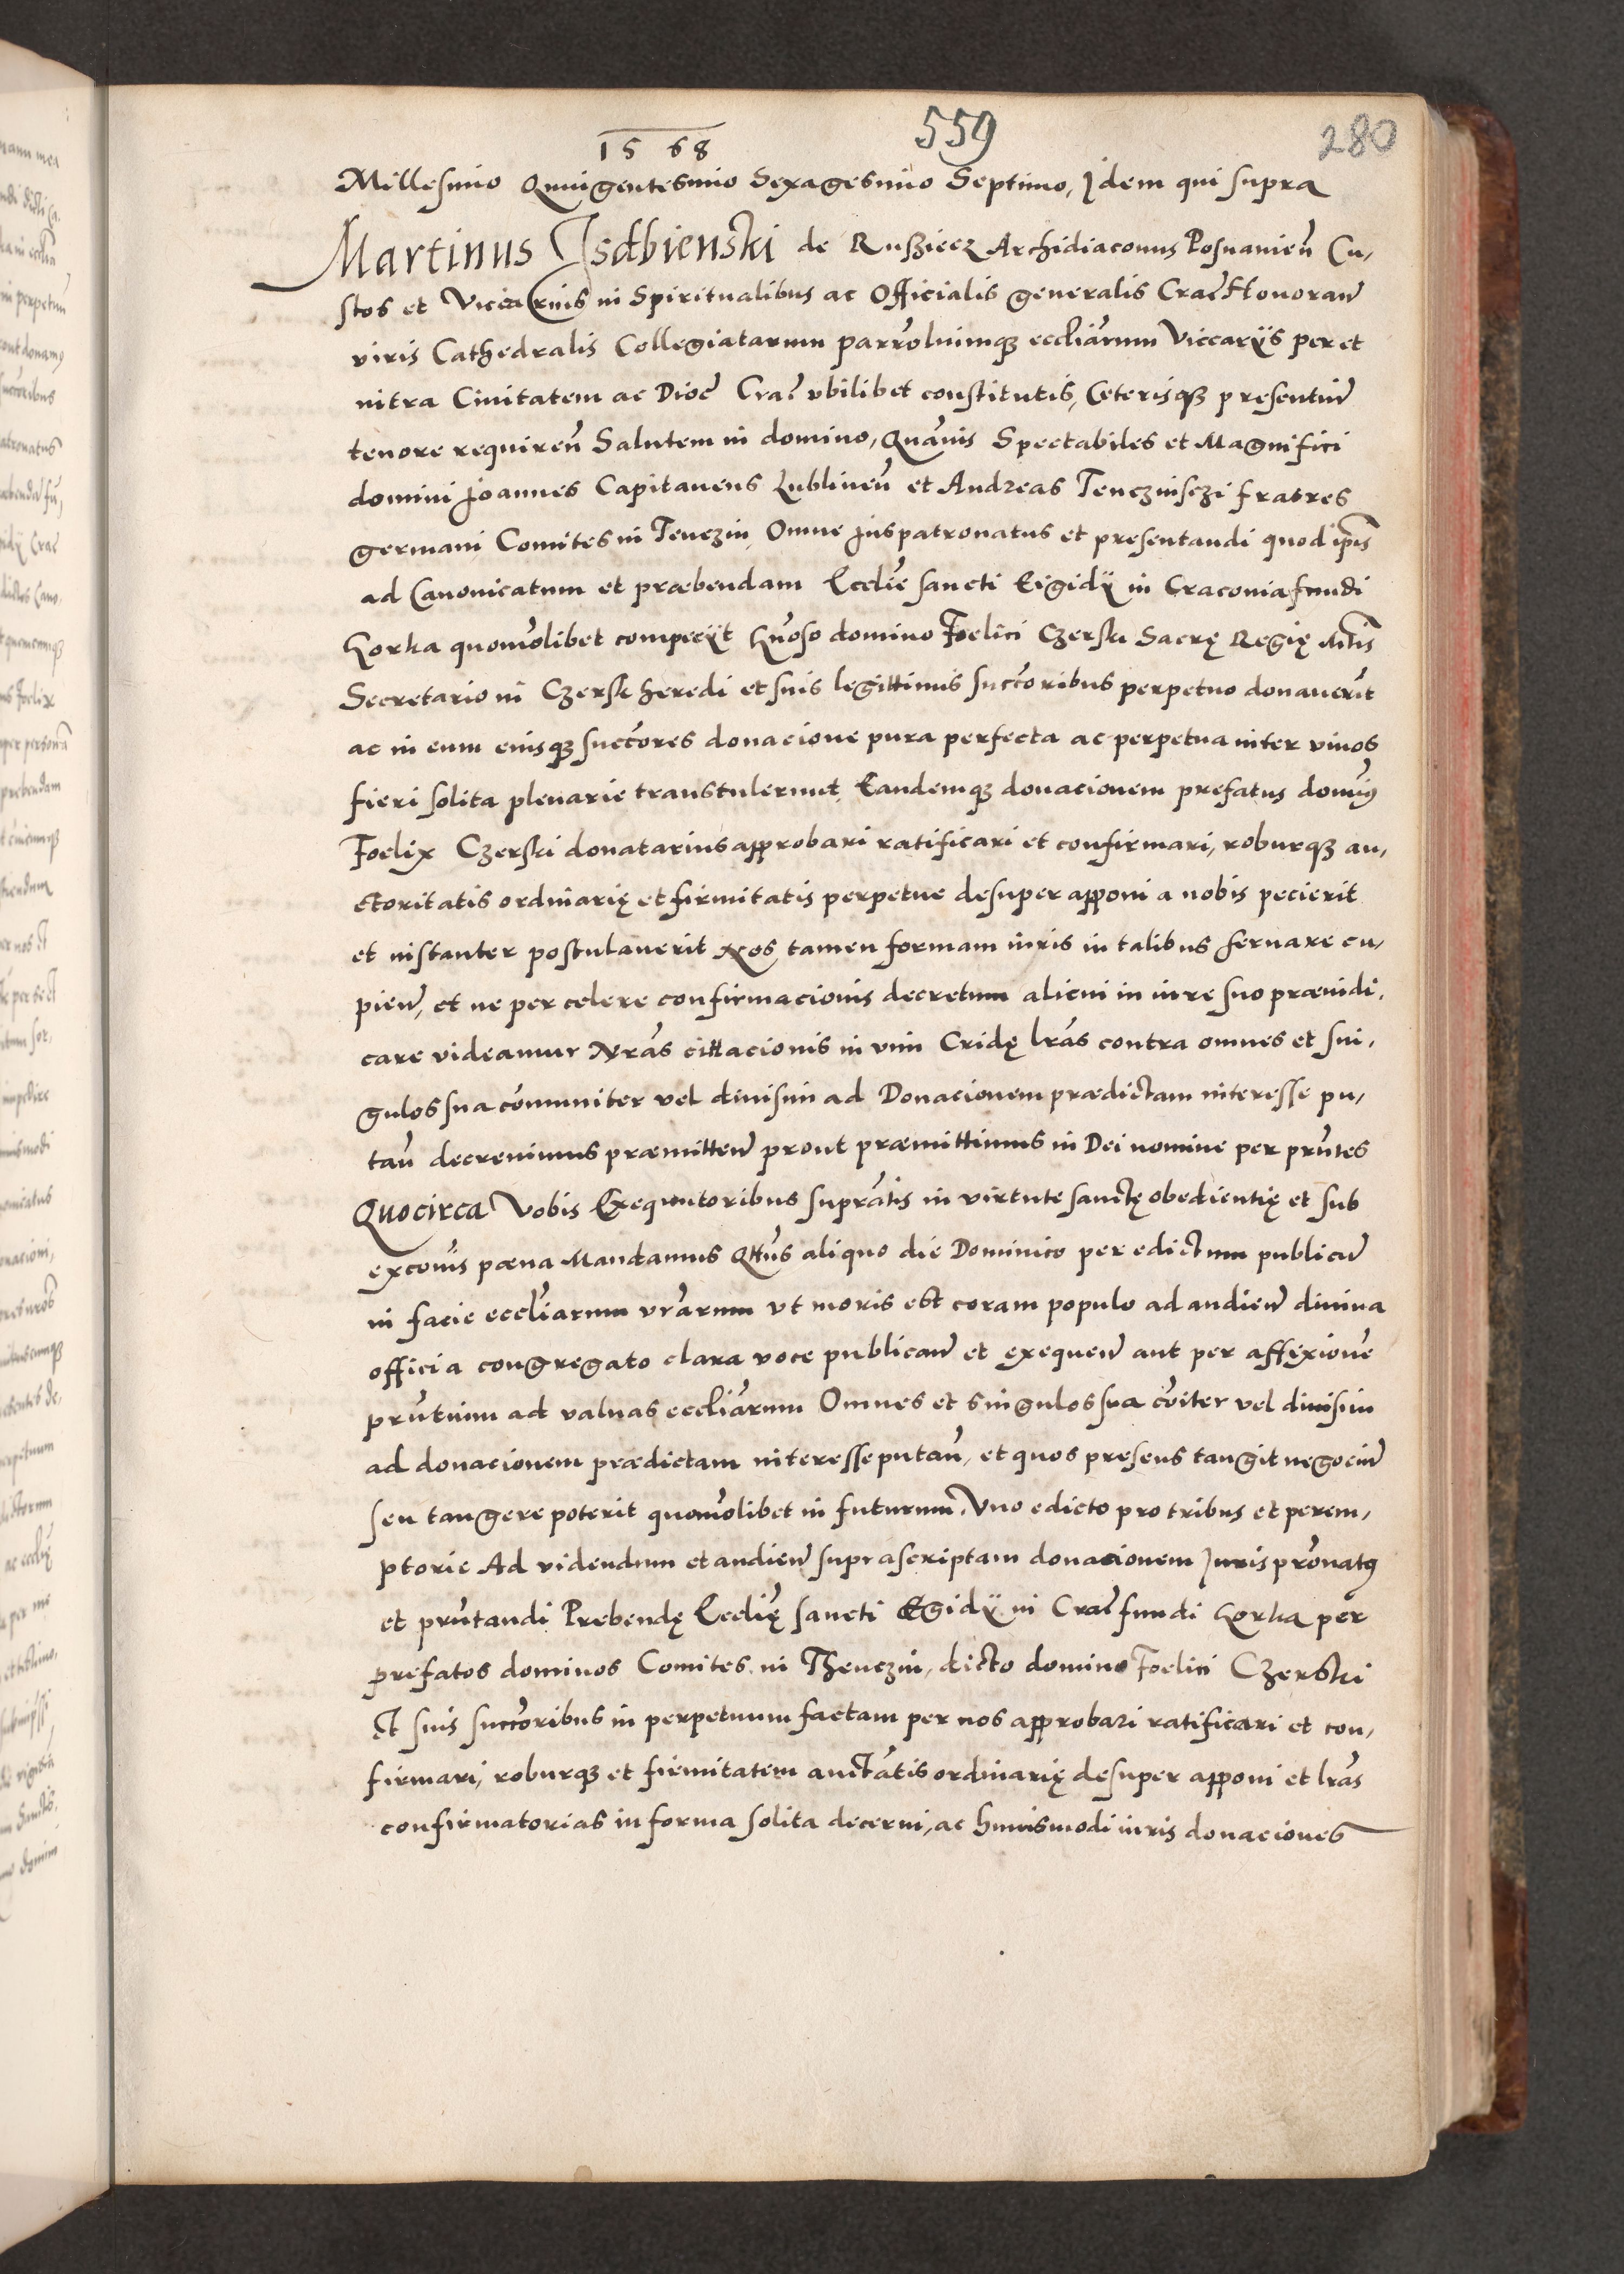 1568
559
280
Millesimo Quingentesimo Sexagesimo Septimo, Idem qui supra
Martinus Isdbienski de Rußiecz Archidiaconus Posnanień Cu-
stos et Vicarius in Spiritualibus ac Officialis generalis Crac̄ Honoran̄
viris Cathedralis Collegiatarum parrōluimqȝ eccliarum Viccarÿs per et
intra Ciuitatem ac Dioc̄ Crac̄ vbilibet constitutis, Ceterisqȝ presentiū
tenore requireñ Salutem in domino, Quāuis Spectabiles et Magnifici
domini Joannes Capitaneus Lublineñ et Andreas Tenczinsczi fratres
germani Comites in Tenczin, Omne juspatronatus et presentandi quod ip̄is
ad Canonicatum et præbendam Ecclie sancti Eigidÿ in Cracouia fundi
Gorka quomōlibet compeciit Gn̄oso domino Foelici Czerski Sacrę Regię Mt̄is
Secretario in Czersk heredi et suis legittimis succ̄oribus perpetuo donauerīt
ac in eum eiusqȝ succ̄ores donacione pura perfecta ac perpetua inter viuos
fieri solita plenarie transtulerunt. Eandemqȝ donacionem prefatus domiņ
Foelix Czerski donatarius approbari ratificari et confirmari, roburqȝ au-
ctoritatis ordinarię et firmitatis perpetue desuper apponi a nobis pecierit
et instanter postulauerit Nos tamen formam iuris in talibus seruare cu-
pien̄, et ne per celere confirmacionis decretum alicui in iure suo præiudi-
care videamur Nrās cittacionis in vim Cridę lrās contra omnes et sin-
gulos sua cōmuniter vel diuisim ad Donacionem prædictam interesse pu-
tañ decreuimus præmitten̄ prout præmittimus in Dei nomine per prn̄tes
Quocirca Vobis Exequutoribus suprātis in virtute sanctę obedientię et sub
excōnis pœna Mandamus Qtt̄us aliquo die Dominico per edictum publicū
in facie eccliarum vrārum vt moris est coram populo ad audien̄ diuina
officia congregato clara voce publican̄ et exequen̄ aut per affixionē
prn̄tium ad valuas eccliarum Omnes et singulos sua cōiter vel diuisim
ad donacionem prædictam interesse putañ, et quos presens tangit negociū
seu tangere poterit quomōlibet in futurum. Vno edicto pro tribus et perem-
ptorie Ad videndum et audien̄ suprascriptam donacionem Juris prōnatꝯ
et prn̄tandi Prebendę Eccliȩ sancti Egidÿ in Crac̄ fundi Gorka per
prefatos dominos Comites in Thenczin, dicto domino Foelici Czerski
Et suis succ̄oribus in perpetuum factam per nos approbari ratificari et con-
firmari, roburqȝ et firmitatem auctātis ordinarię desuper apponi et lrās
confirmatorias in forma solita decerni, ac huiusmodi iuris donaciones